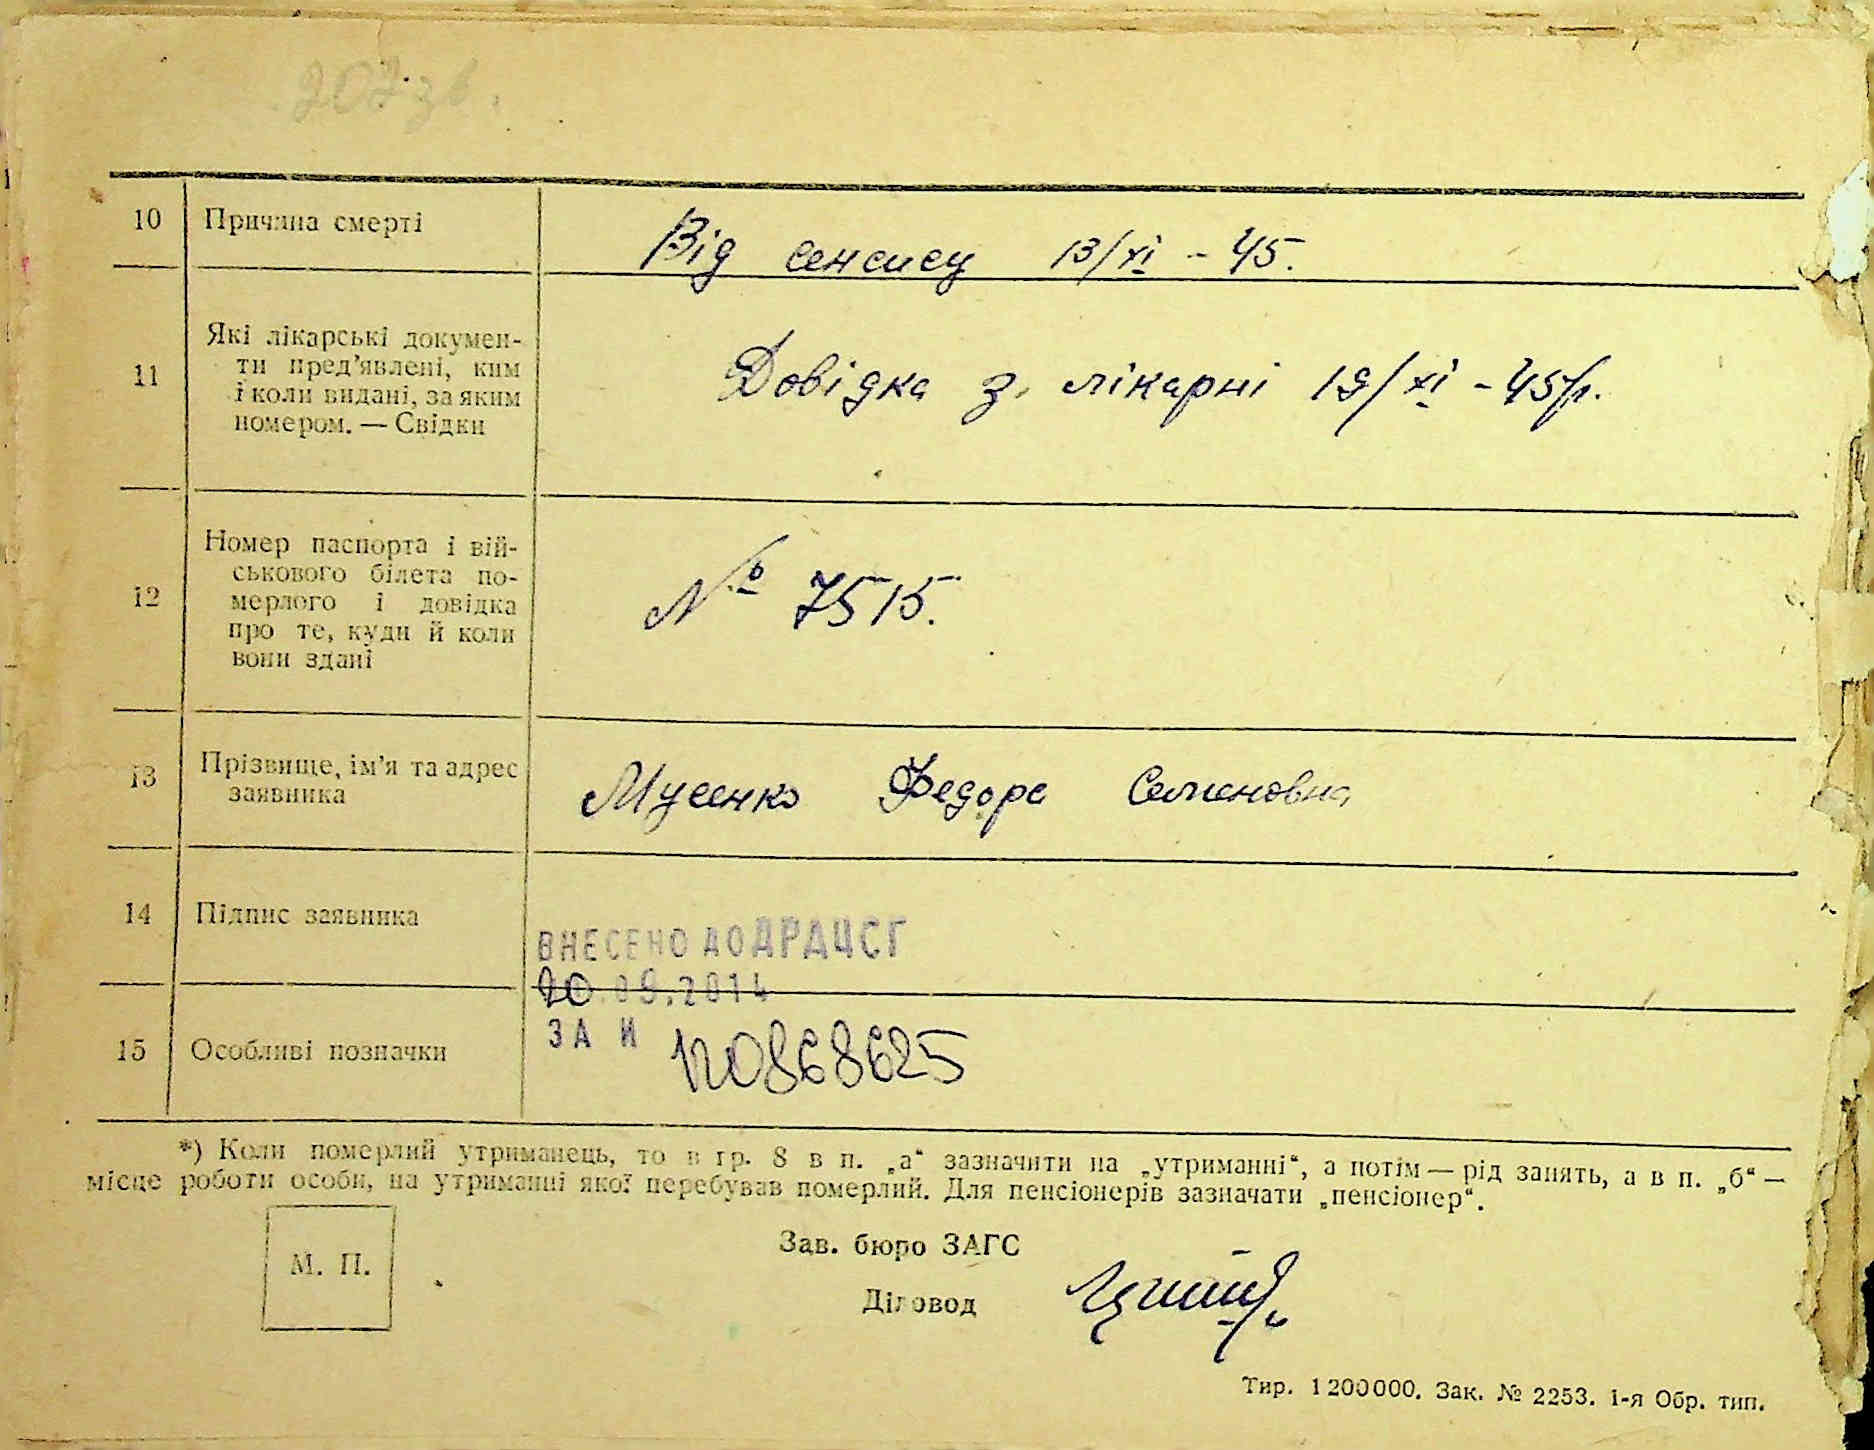 207 зв.
10 Причина смерті Від сепсису 13/XI - 45.
11 Які лікарські докумен-
ти пред'явлені, ким
і коли видані, за яким
номером. — Свідки
Довідка з лікарні 19/XI - 45 р.
12 Номер паспорта і вій-
ськового білета по-
мерлого і довідка
про те, куди й коли
вони здані
№ 7515.
13 Прізвище, ім'я та адрес
заявника
Мусенко Федора Семеновна
14 Підпис заявника
ВНЕСЕНО ДО ДРАЦСГ
20.09.2014
15 Особливі позначки
ЗА N 120868625
*) Коли померлий утриманець, то в гр. 8 в п. „а“ зазначити на „утриманні“, а потім — рід занять, а в п. „б“ —
місце роботи особи, на утриманні якої перебував померлий. Для пенсіонерів зазначати „пенсіонер“.
М. П.
Зав. бюро ЗАГС
Діловод
Тир. 1200000. Зак. № 2253. 1-я Обр. тип.